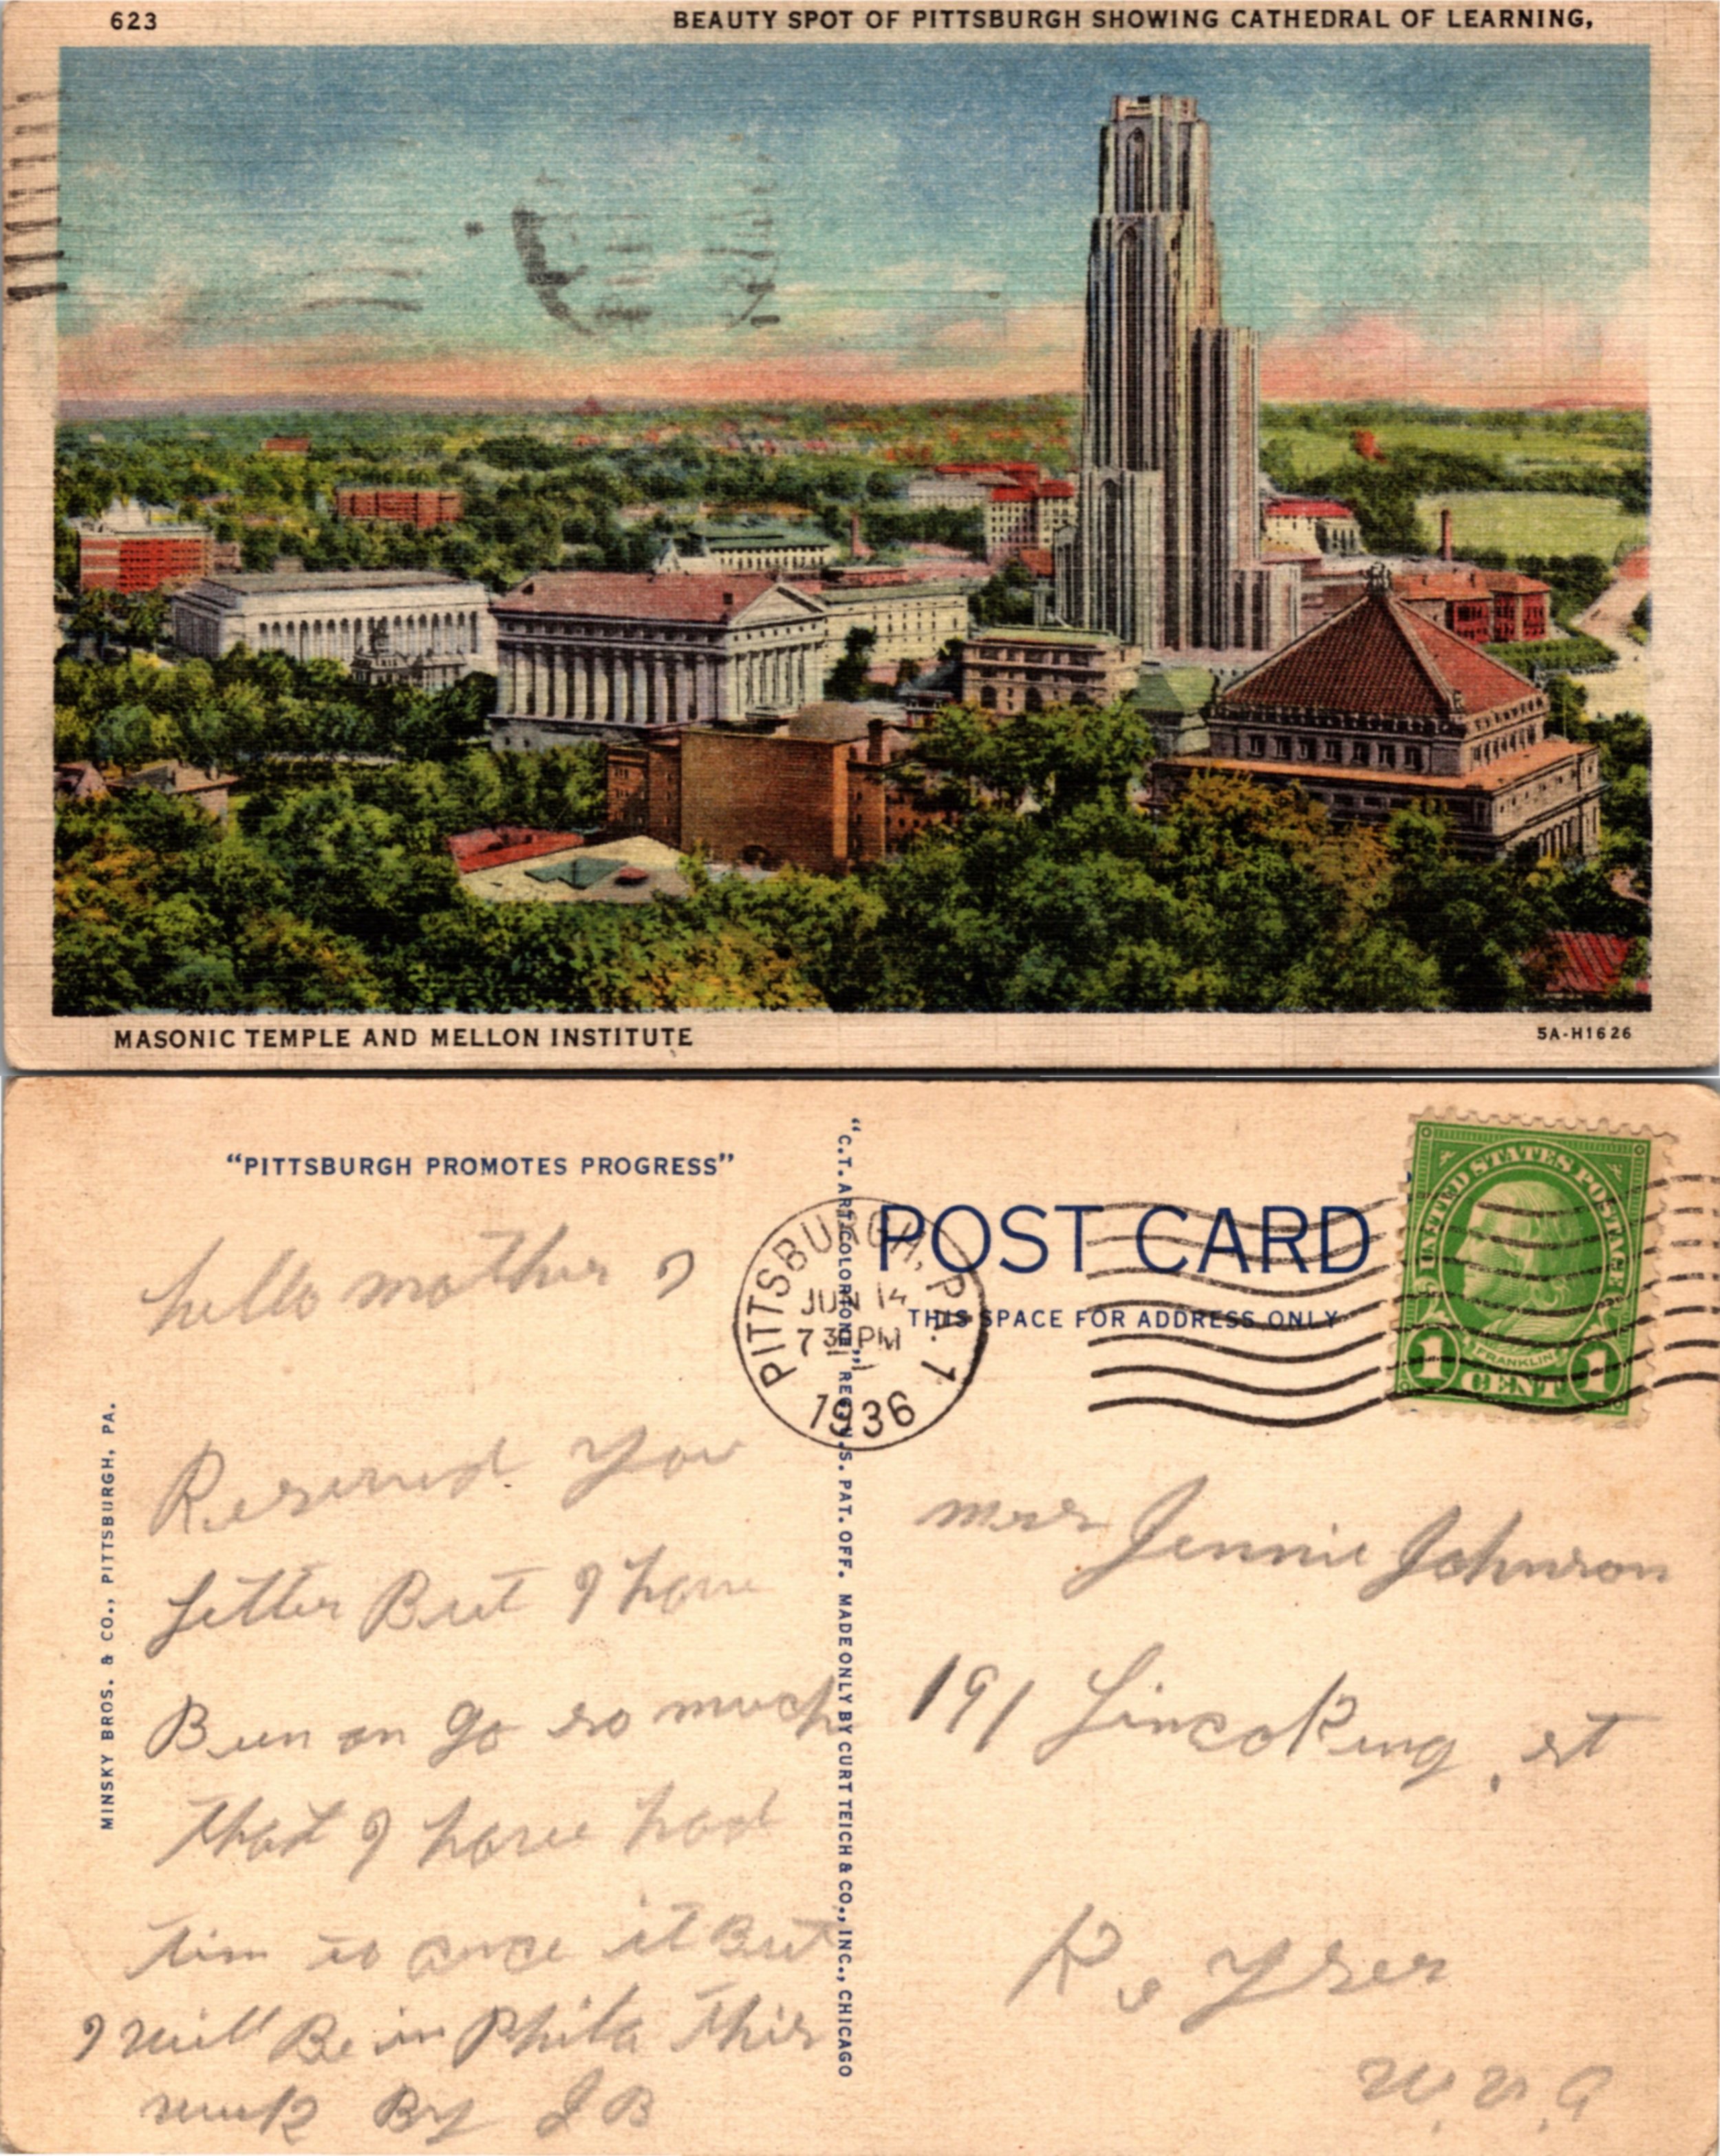 623
BEAUTY SPOT OF PITTSBURGH SHOWING CATHEDRAL OF LEARNING,
MASONIC TEMPLE AND MELLON INSTITUTE
5A-H1626
"PITTSBURGH PROMOTES PROGRESS"
hello mother I
Reserved You
Letter But I have
Been on go so much
that I have had
tim to ance it But
I will Be in Phila this
week By J B
MINSKY BROS. & CO., PITTSBURGH, PA.
"C.T. ART-COLORTONE" REG. U.S. PAT. OFF. MADE ONLY BY CURT TEICH & CO., INC., CHICAGO
PITTSBURGH, PA. 1
JUN 14
7 30 PM
1936
POST CARD
THIS SPACE FOR ADDRESS ONLY
UNITED STATES POSTAGE
FRANKLIN
1 CENT 1
mrs Jennie Johnson
191 st
W. V. A